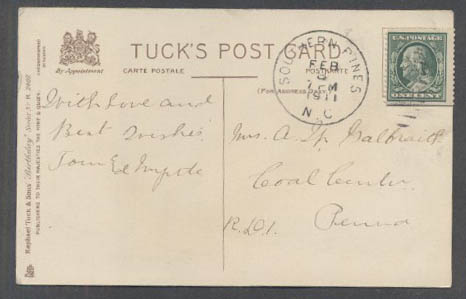 TUCK'S POST CARD
By Appointment
CARTE POSTALE
POSTKARTE
(FOR ADDRESS ONLY)
SOUTHERN PINES
FEB
7 M
1911
N.C.
U.S. POSTAGE
ONE CENT
With love and
Best wishes
Tom Ed Myrtle
Mrs. A. W. Galbraith
Coal Center
R.D.1.
Penna
Raphael Tuck & Sons' "Birthday" Series
PUBLISHERS TO THEIR MAJESTIES THE KING & QUEEN